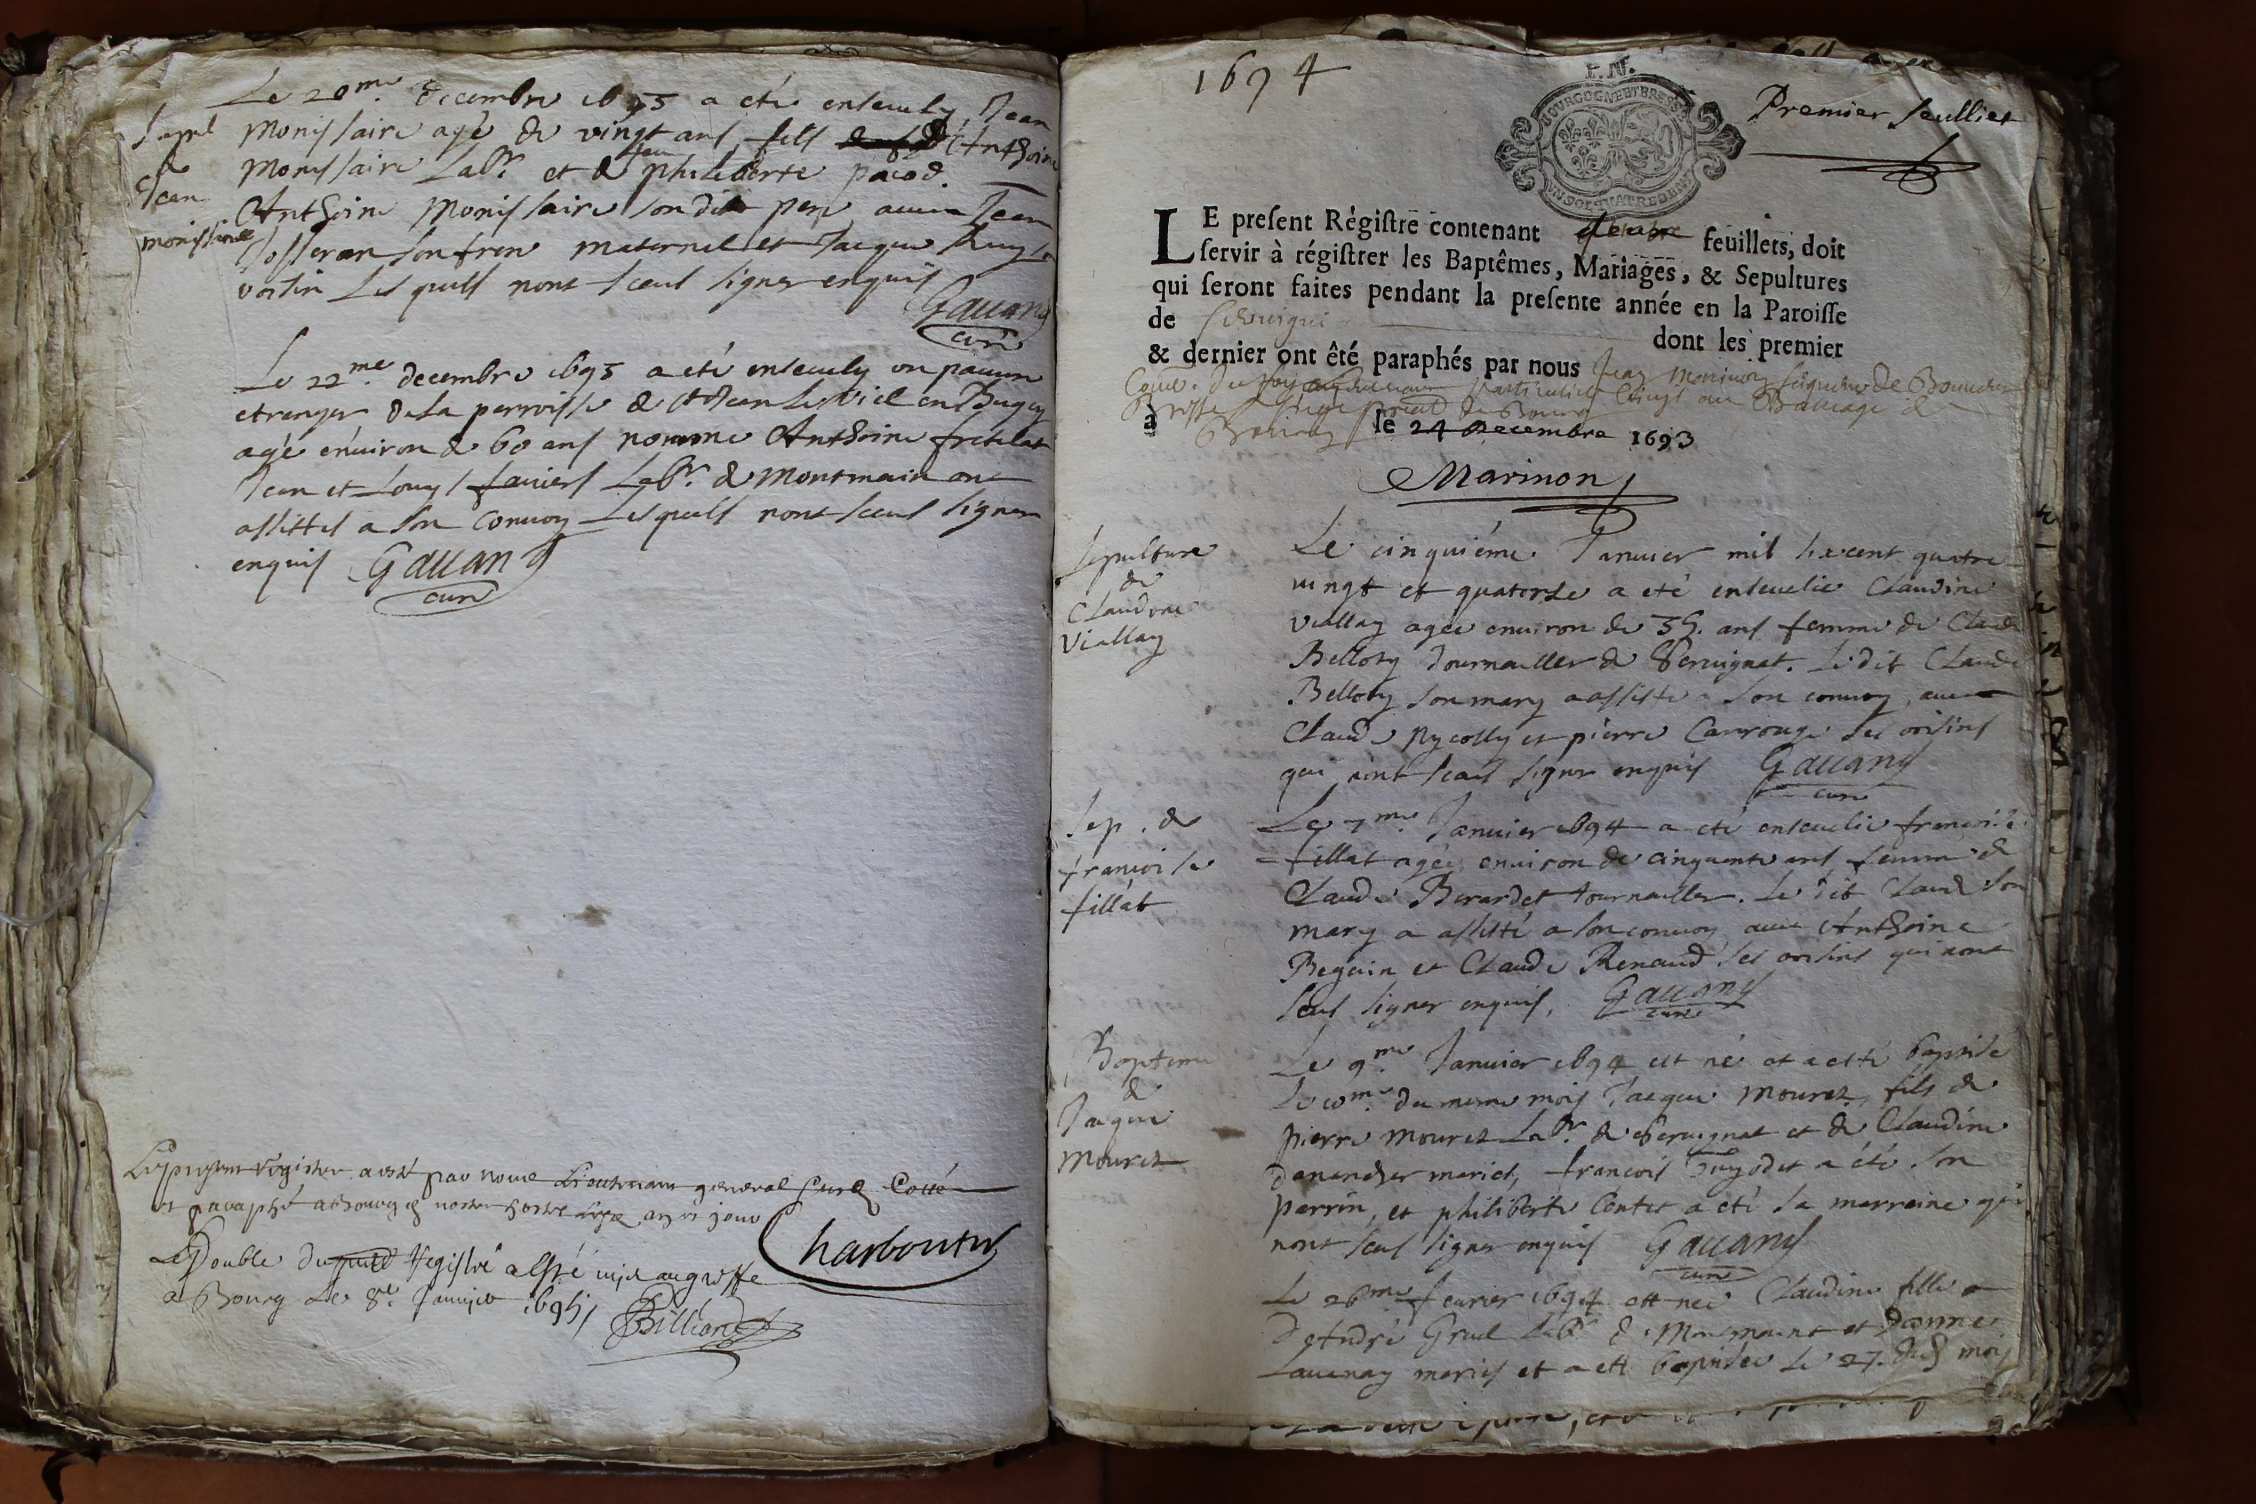 Le 20me decembre 1693 a eté ensevely Jean
Monissaire agé de vingt ans fils Anthoine
Monissaire Labr. et de feu philiberte pacod.
Anthoine Monissaire son dit pere avec Jean
Josseran son frere maternel et Jacque
voisin Lesquels nont sceus signer enquis
Gauand
curé
sepul
de
Jean
monissaire
Le 22me decembre 1693 a eté ensevely un pauvre
etranger de La parroisse de St Jean Le Viel en Bugey
agé environ de 60 ans nommé Anthoine
Jean et Louys Labr. de Montmain ont
assistes a son convoy Lesquels nont sceus signer
enquis Gauand
curé
register a esté par nous Lieutenant general Cotté
et paraphé a Bourg en nostre hostel
Charbonier
Le Double du Registre a esté mis au greffe
a Bourg Le 8e Janvier
Billiard
1694
Premier feulliet
BOURGOGNE ET BRESSE
LE present Régistre contenant feuillets, doit
servir à régistrer les Baptêmes, Mariages, & Sepultures
qui seront faites pendant la presente année en la Paroisse
de dont les premier
& dernier ont été paraphés par nous Jean Marinon seigneur de
Coner. du Roy particulier
Bresse
à Bourg le 24 Decembre 1693
Marinon
Sepulture
de
Claudine
Viallay
Le cinquiéme Janvier mil six cent quatre
vingt et quatorse a eté ensevelie Claudine
Viallay agée environ de 35. ans femme de Claude
Bellosy Journallier de Servignat. Le dit Claude
Bellosy son mary a assisté a son convoy, avec
Claude Nycolly et pierre Carronge ses voisins
qui nont sceus signer enquis Gauand
curé
Sep. de
francoise
fillat
Le 7me Janvier 1694 a eté ensevelie francoise
fillat agée environ de cinquante ans femme de
Claude Berardet Journallier. Le dit Claude son
mary a assisté a son convoy avec Anthoine
Beguin et Claude Renaud ses voisins qui nont
sceus signer enquis. Gauand
curé
Bapteme
de
Jaque
Mourez
Le 9me Janvier 1694 est né et a esté baptisé
Le 10me du meme mois Jacque Mourez, fils de
pierre Mourez Labr. de Servignat et de Claudine
maries, francois Guyodet a eté son
parrin, et philiberte Contet a eté sa marreine qui
nont sceus signer enquis Gauand
curé
Le 26me fevrier 1694 est née Claudine fille
D'André Gruel Labr. de Monmaint et Jeanne
Lavenay maries et a eté baptisée Le 27. dud. mois